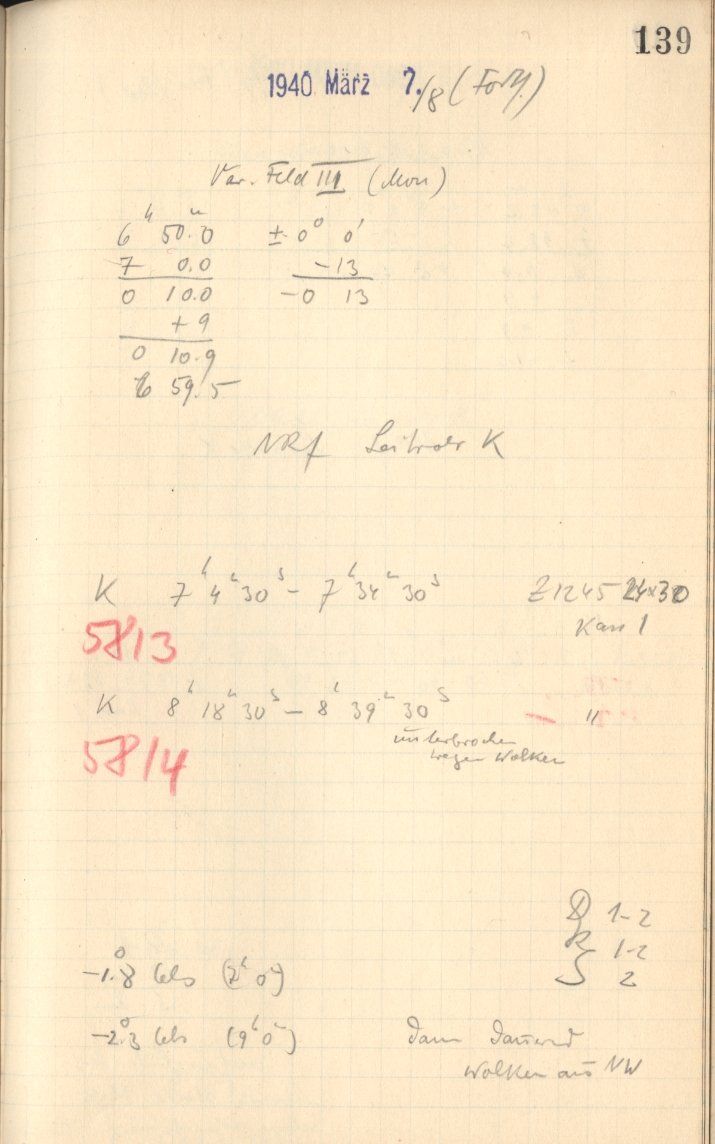 139
1940 März 7./8 (Forts.)
Var. Feld III (Mon)
6ʰ 50.ᵐ0 ± 0° 0'
7 0.0 -13
0 10.0 -0 13
+ 9
0 10.9
6 59.5
NRf Leitrohr K
K 7ʰ 4ᵐ 30ˢ - 7ʰ 34ᵐ 30ˢ Z1245 24x30
5813 Kass 1
K 8ʰ 18ᵐ 30ˢ - 8ʰ 39ᵐ 30ˢ - "
5814 unterbrochen
wegen Wolken
D 1-2
R 1-2
-1.°8 Cels (7ʰ 0ᵐ) S 2
-2.°3 Cels (9ʰ 0ᵐ) Dann dauernd
Wolken aus NW